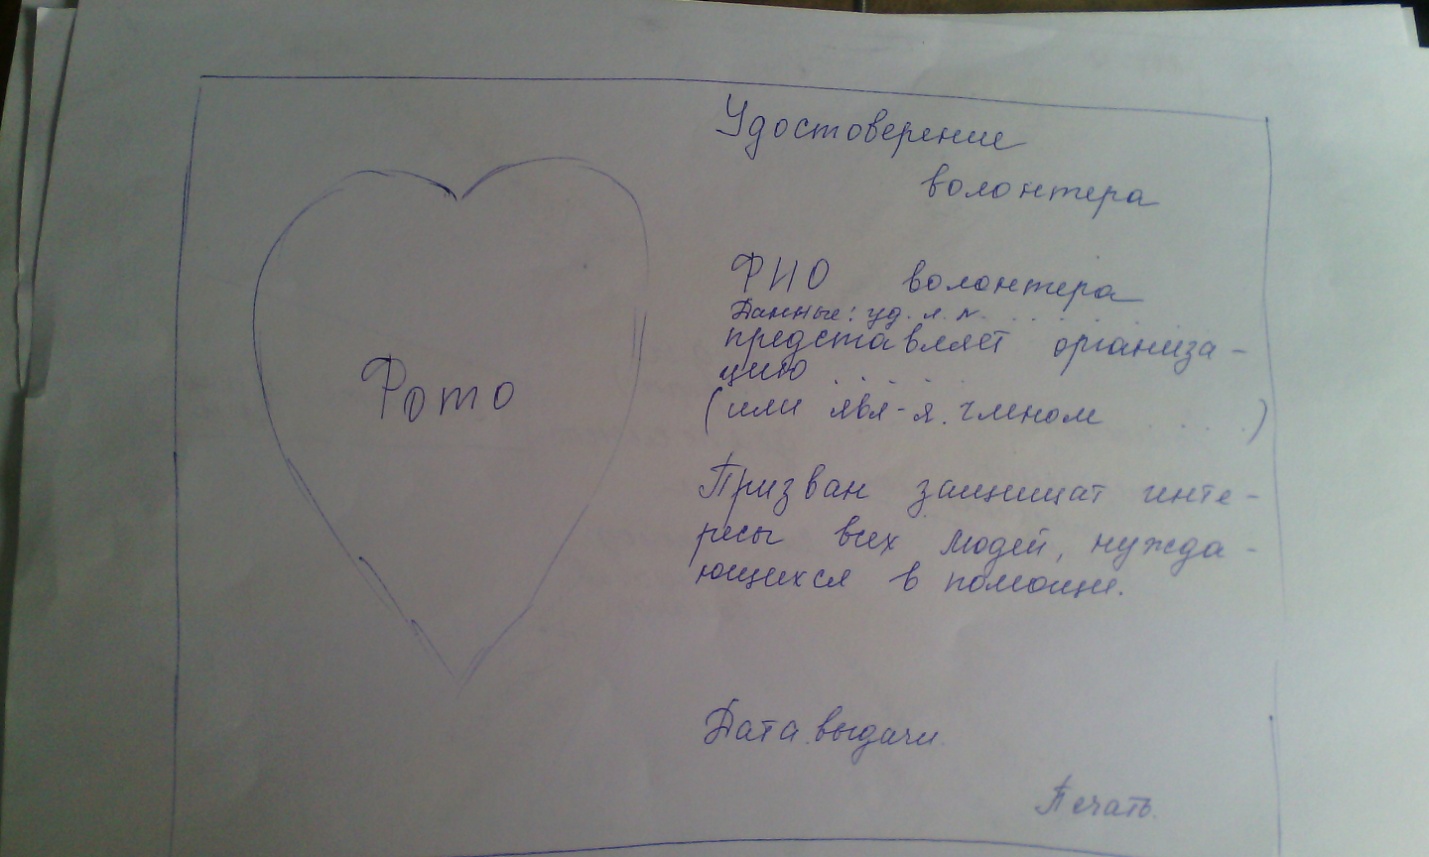 Удостоверение
волонтера
Фото
ФИО волонтера
Данные: уд. л. N. . . .
представляет организа-
цию . . . .
(или явл-я. членом . . . .)
Призван защищат инте-
ресы всех людей, нужда-
ющихся в помощи.
Дата выдачи
Печать.